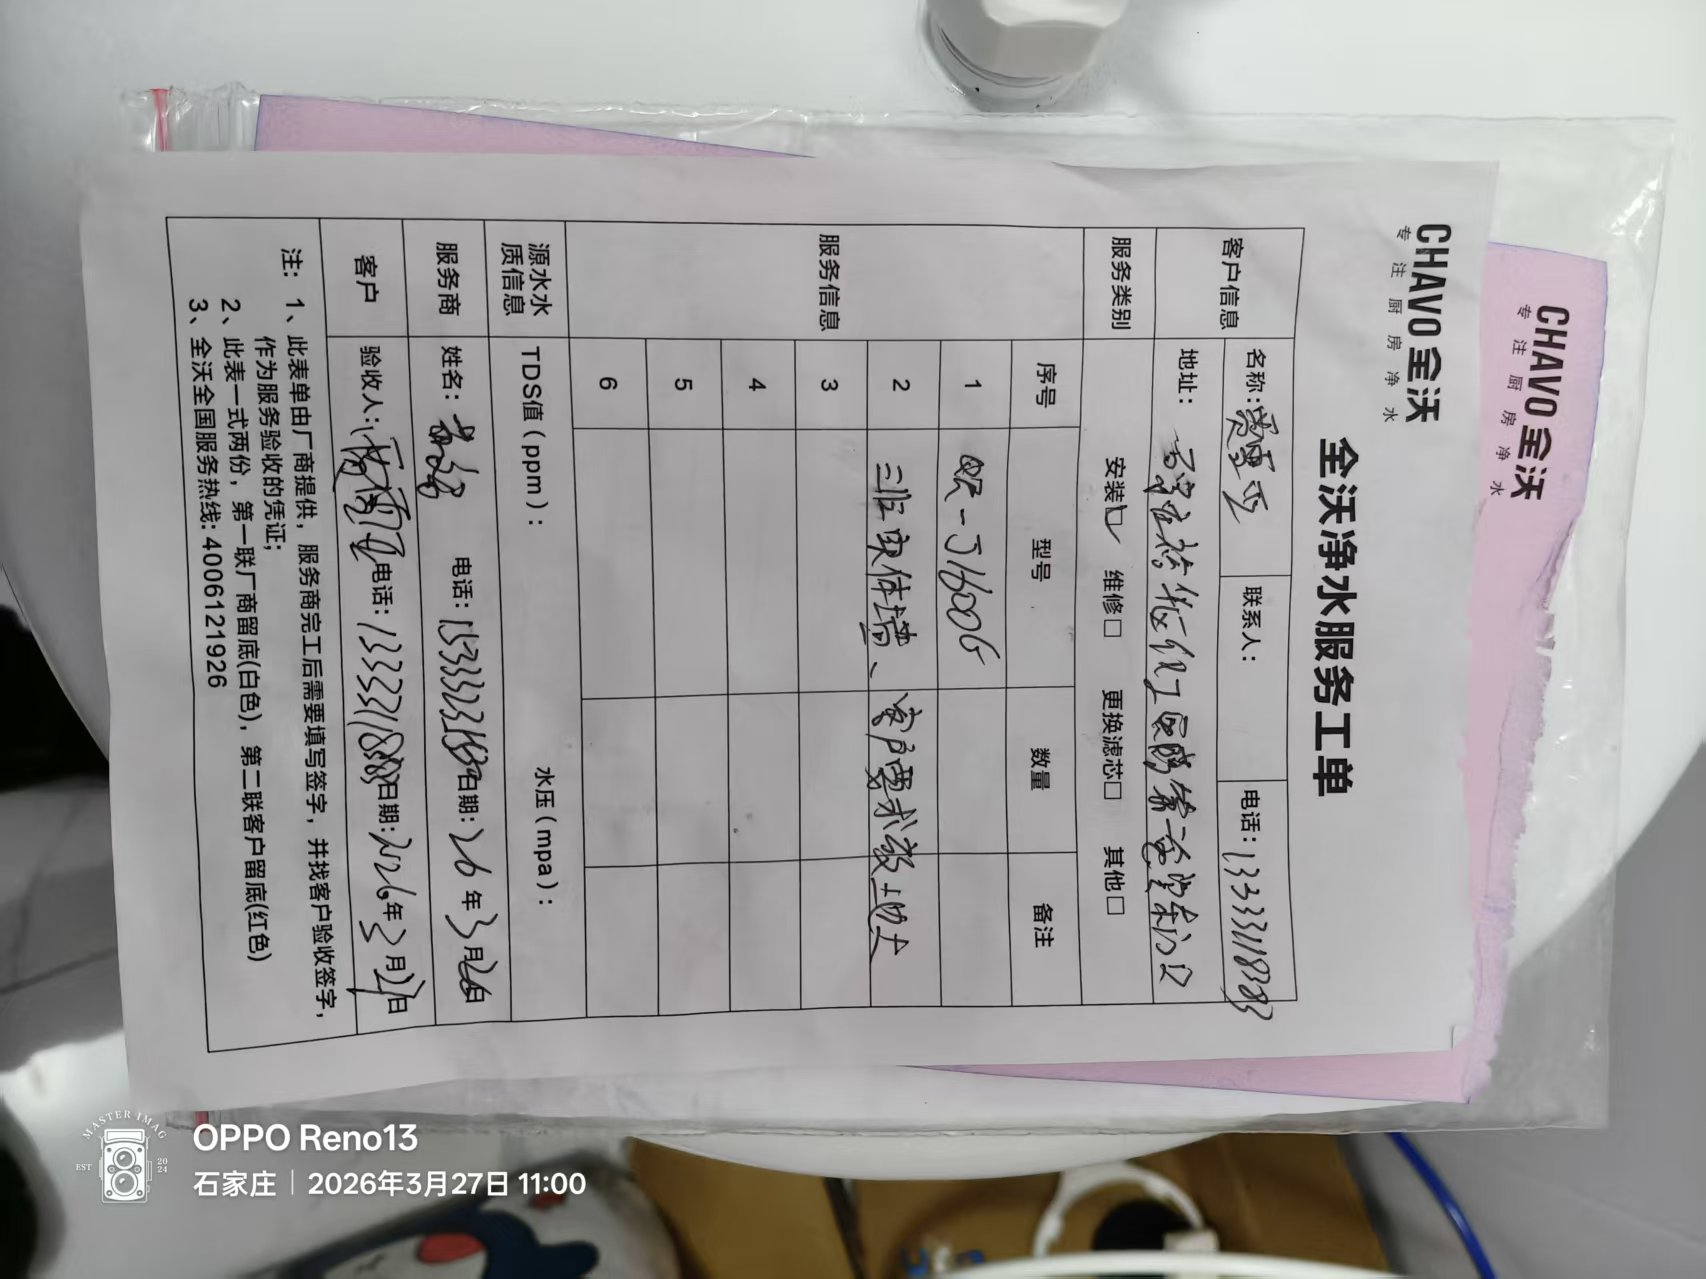 CHAVO 全沃
专注厨房净水
CHAVO 全沃
专注厨房净水
全沃净水服务工单
客户信息 名称: 联系人: 电话: 13333118883
地址:
服务类别 安装☑ 维修□ 更换滤芯□ 其他□
服务信息 序号 型号 数量 备注
1 QR-J1600G
2 非实体墙、客户要求
3
4
5
6
源水水质信息 TDS值(ppm): 水压(mpa):
服务商 姓名: 电话: 日期: 26年3月26日
客户 验收人: 电话: 13333118883 日期: 2026年3月27日
注: 1、此表单由厂商提供,服务商完工后需要填写签字,并找客户验收签字,
作为服务验收的凭证;
2、此表一式两份,第一联厂商留底(白色),第二联客户留底(红色)
3、全沃全国服务热线:4006121926
MASTER IMAG
EST 2024
OPPO Reno13
石家庄 | 2026年3月27日 11:00